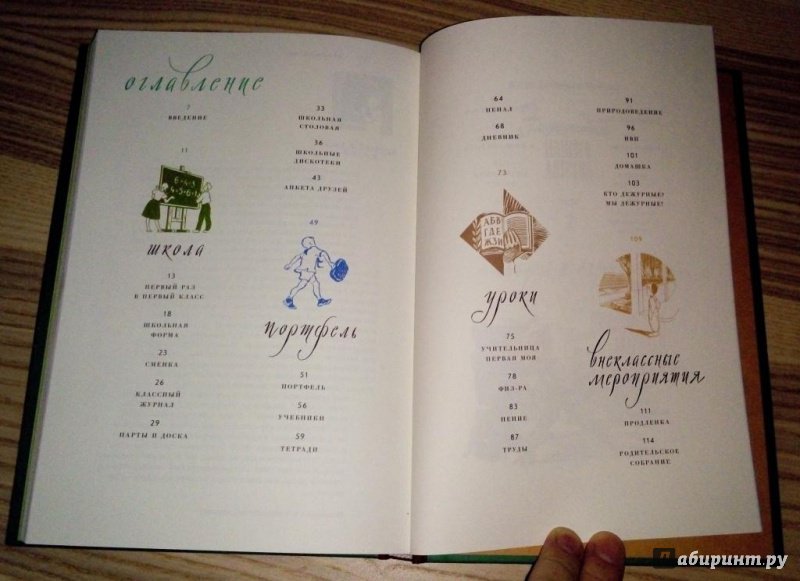 оглавление
7
ВВЕДЕНИЕ
11
6+4-3
школа
13
ПЕРВЫЙ РАЗ
В ПЕРВЫЙ КЛАСС
18
ШКОЛЬНАЯ
ФОРМА
23
СМЕНКА
26
КЛАССНЫЙ
ЖУРНАЛ
29
ПАРТЫ И ДОСКА
33
ШКОЛЬНАЯ
СТОЛОВАЯ
36
ШКОЛЬНЫЕ
ДИСКОТЕКИ
43
АНКЕТА ДРУЗЕЙ
49
портфель
51
ПОРТФЕЛЬ
56
УЧЕБНИКИ
59
ТЕТРАДИ
64
ПЕНАЛ
68
ДНЕВНИК
73
АБВ
ГДЕ
ЖЗИ
уроки
75
УЧИТЕЛЬНИЦА
ПЕРВАЯ МОЯ
78
ФИЗ-РА
83
ПЕНИЕ
87
ТРУДЫ
91
ПРИРОДОВЕДЕНИЕ
96
НВП
101
ДОМАШКА
103
КТО ДЕЖУРНЫЕ?
МЫ ДЕЖУРНЫЕ!
109
внеклассные
мероприятия
111
ПРОДЛЕНКА
114
РОДИТЕЛЬСКОЕ
СОБРАНИЕ
Лабиринт.ру